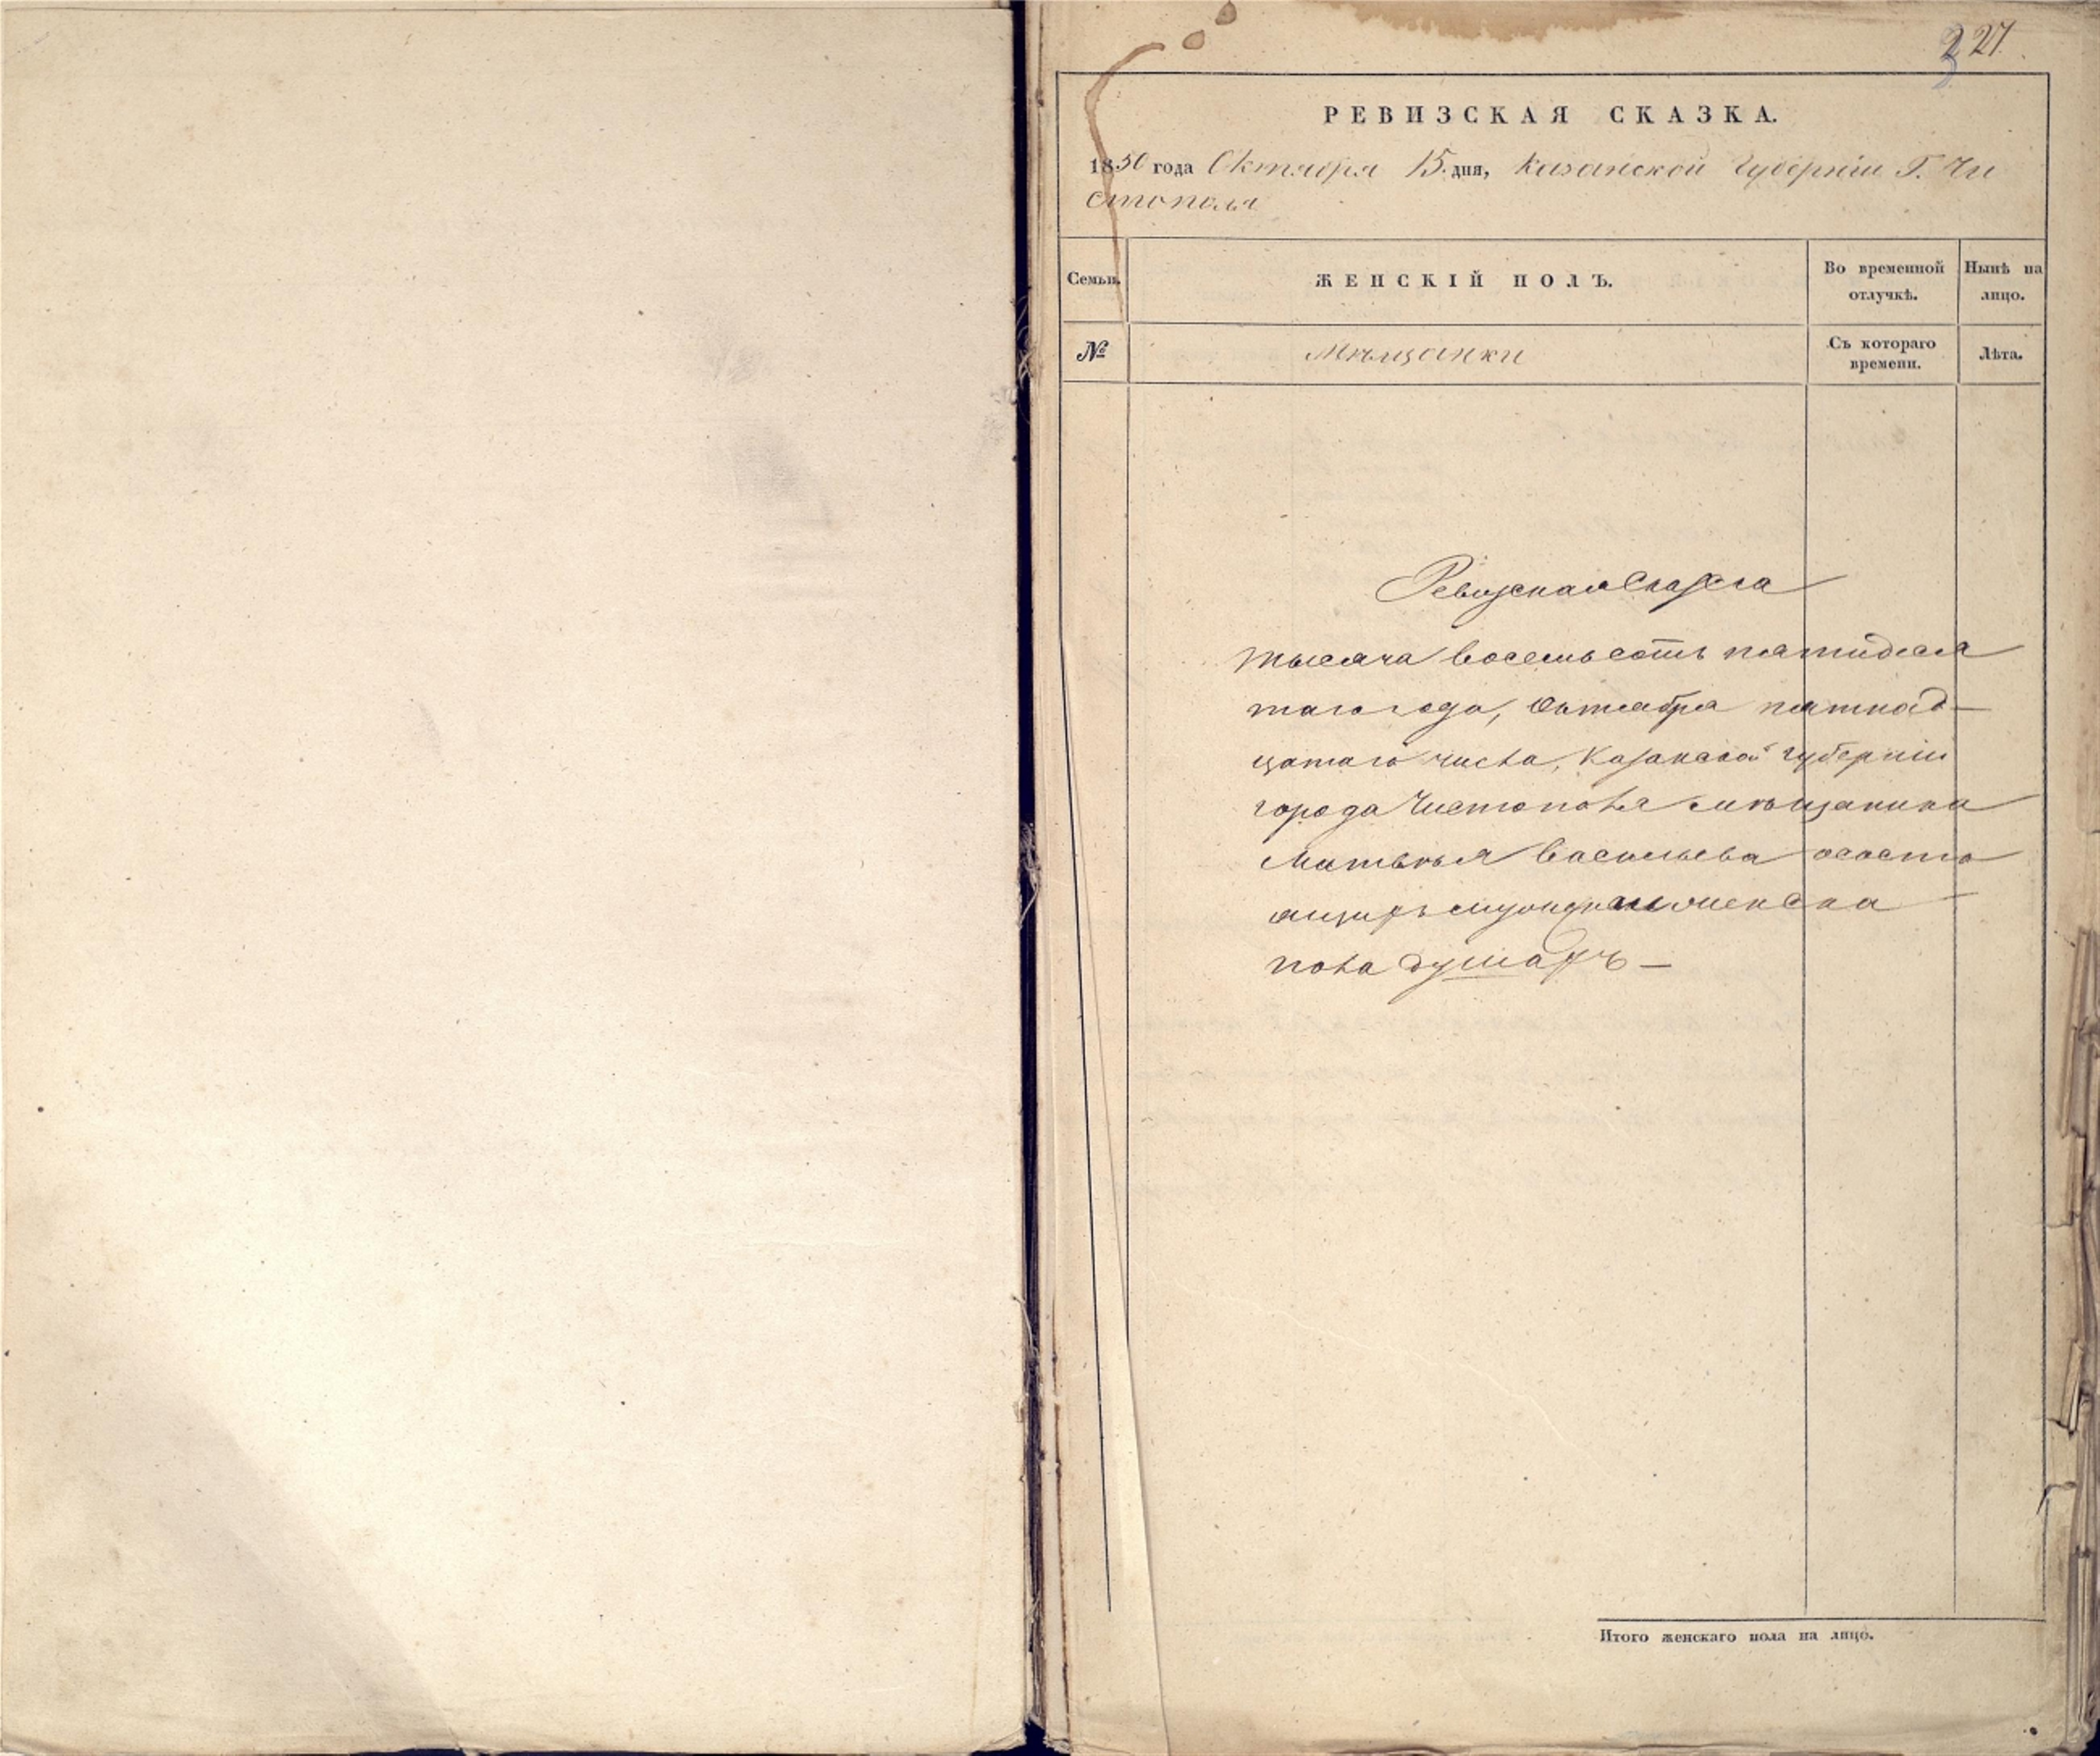 327
РЕВИЗСКАЯ СКАЗКА.
1850 года Октября 15 дня, Казанской Губерніи Г. Чи
стополя
Семьи.
ЖЕНСКІЙ ПОЛЪ.
Во временной
отлучкѣ.
Нынѣ на
лицо.
№
Мѣщанки
Съ котораго
времени.
Лѣта.
Ревизская Сказка
тысяча восемьсотъ пятидеся
таго года, Октября пятнад-
цатаго числа, Казанской губерніи
города Чистополя мѣщанина
Матвѣя Васильева осостo
ящихъ мужска и женска
пола душахъ —
Итого женскаго пола на лицо.